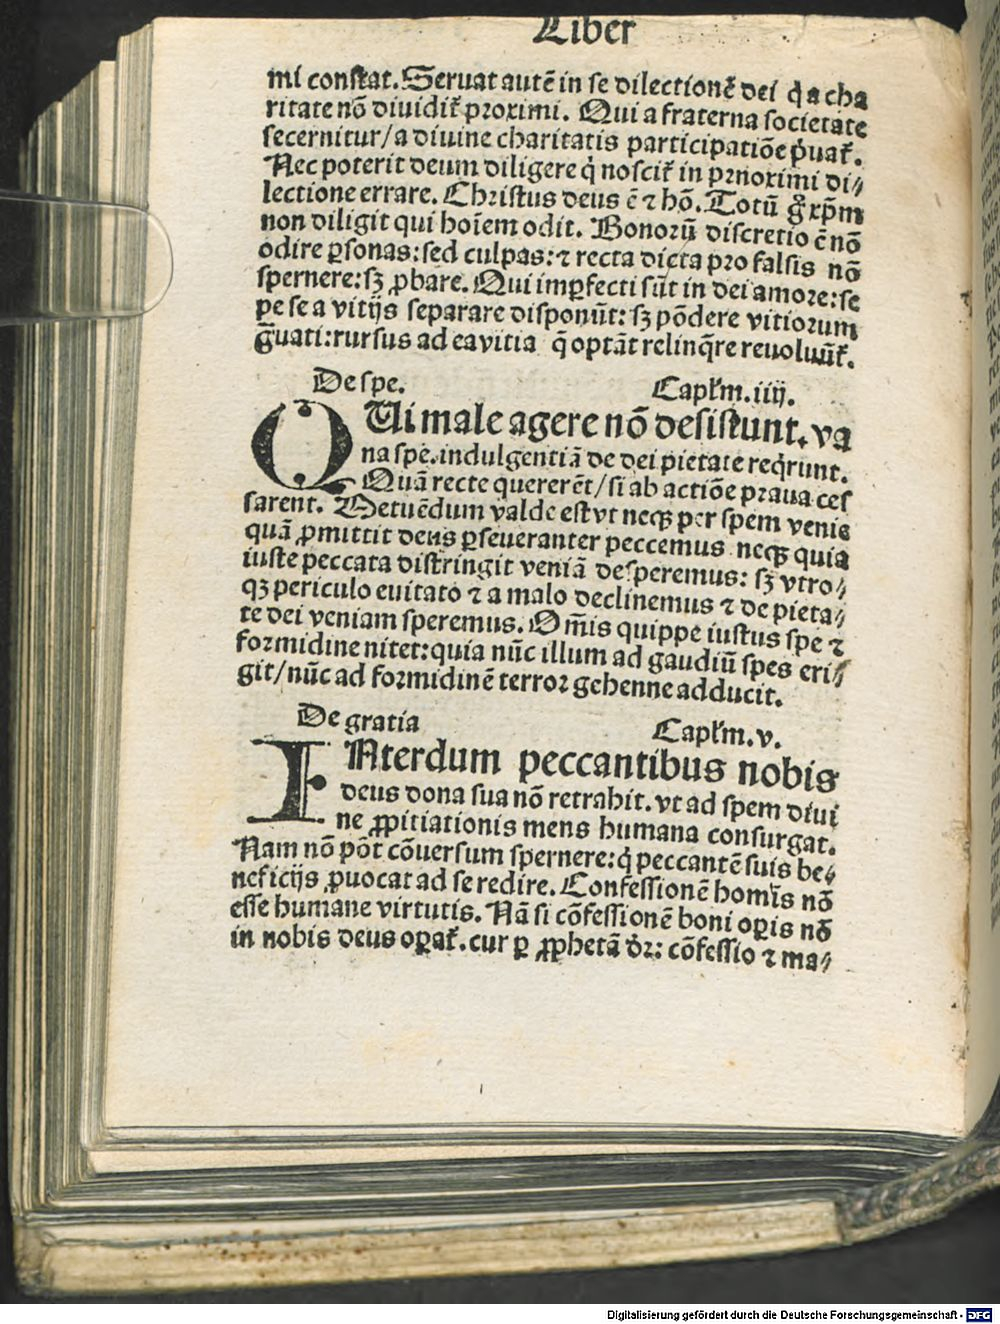 Liber
mi constat. Seruat autē in se dilectionē dei q̇ a cha
ritate nō diuidit̃ proximi. Qui a fraterna societate
secernitur/a diuine charitatis participatiōe p̓uat̃.
Nec poterit deum diligere q̇ noscit̃ in prnoximi di⸗
lectione errare. Christus deus ē ⁊ hō. Totū g̊ xp̄m
non diligit qui hoīem odit. Bonorū discretio ē nō
odire ꝑsonas: sed culpas: ⁊ recta dicta pro falsis nō
spernere: sꝫ ꝓbare. Qui imꝑfecti sūt in dei amore: se
pe se a vitijs separare disponūt: sꝫ pōdere vitiorum
g̃uati: rursus ad ea vitia q̄ optāt relinq̃re reuoluūt̃.
De spe. Capl̃m. iiij.
QUi male agere nō desistunt. va
na spe. indulgentiā de dei pietate reqrunt.
Quā recte quererēt/si ab actiōe praua ces
sarent. Metuēdum valde est vt neqꝫ per spem venie
quā ꝓmittit deus ꝑseueranter peccemus neqꝫ quia
iuste peccata distringit veniā desperemus: sꝫ vtro⸗
qꝫ periculo euitato ⁊ a malo declinemus ⁊ de pieta⸗
te dei veniam speremus. Om̄is quippe iustus spe ⁊
formidine nitet: quia nūc illum ad gaudiū spes eri⸗
git/nūc ad formidinē terror gehenne adducit.
De gratia Capl̃m. v.
INterdum peccantibus nobis
deus dona sua nō retrahit. vt ad spem diui
ne ꝓpitiationis mens humana consurgat.
Nam nō pōt cōuersum spernere: q̇ peccantē suis be⸗
neficijs ꝓuocat ad se redire. Confessionē homīs nō
esse humane virtutis. Nā si cōfessionē boni oꝑis nō
in nobis deus oꝑat̃. cur ꝑ ꝓphetā dr̃: cōfessio ⁊ ma⸗
Digitalisierung gefördert durch die Deutsche Forschungsgemeinschaft - DFG